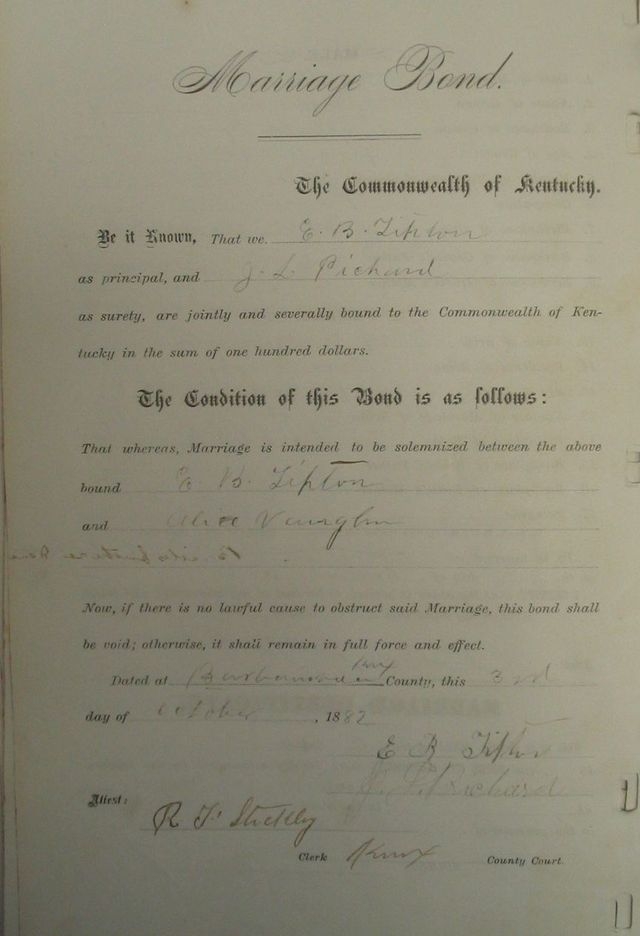 Marriage Bond.
The Commonwealth of Kentucky.
Be it Known, That we, E. B. Tipton
as principal, and J. L. Pichard
as surety, are jointly and severally bound to the Commonwealth of Ken-
tucky in the sum of one hundred dollars.
The Condition of this Bond is as follows:
That whereas, Marriage is intended to be solemnized between the above
bound E. B. Tipton
and Alice Vaughn
Now, if there is no lawful cause to obstruct said Marriage, this bond shall
be void; otherwise, it shall remain in full force and effect.
Dated at Knox County, this 3rd
day of October, 1882
E B Tipton
Attest:
R F Stickly
Clerk Knox County Court.